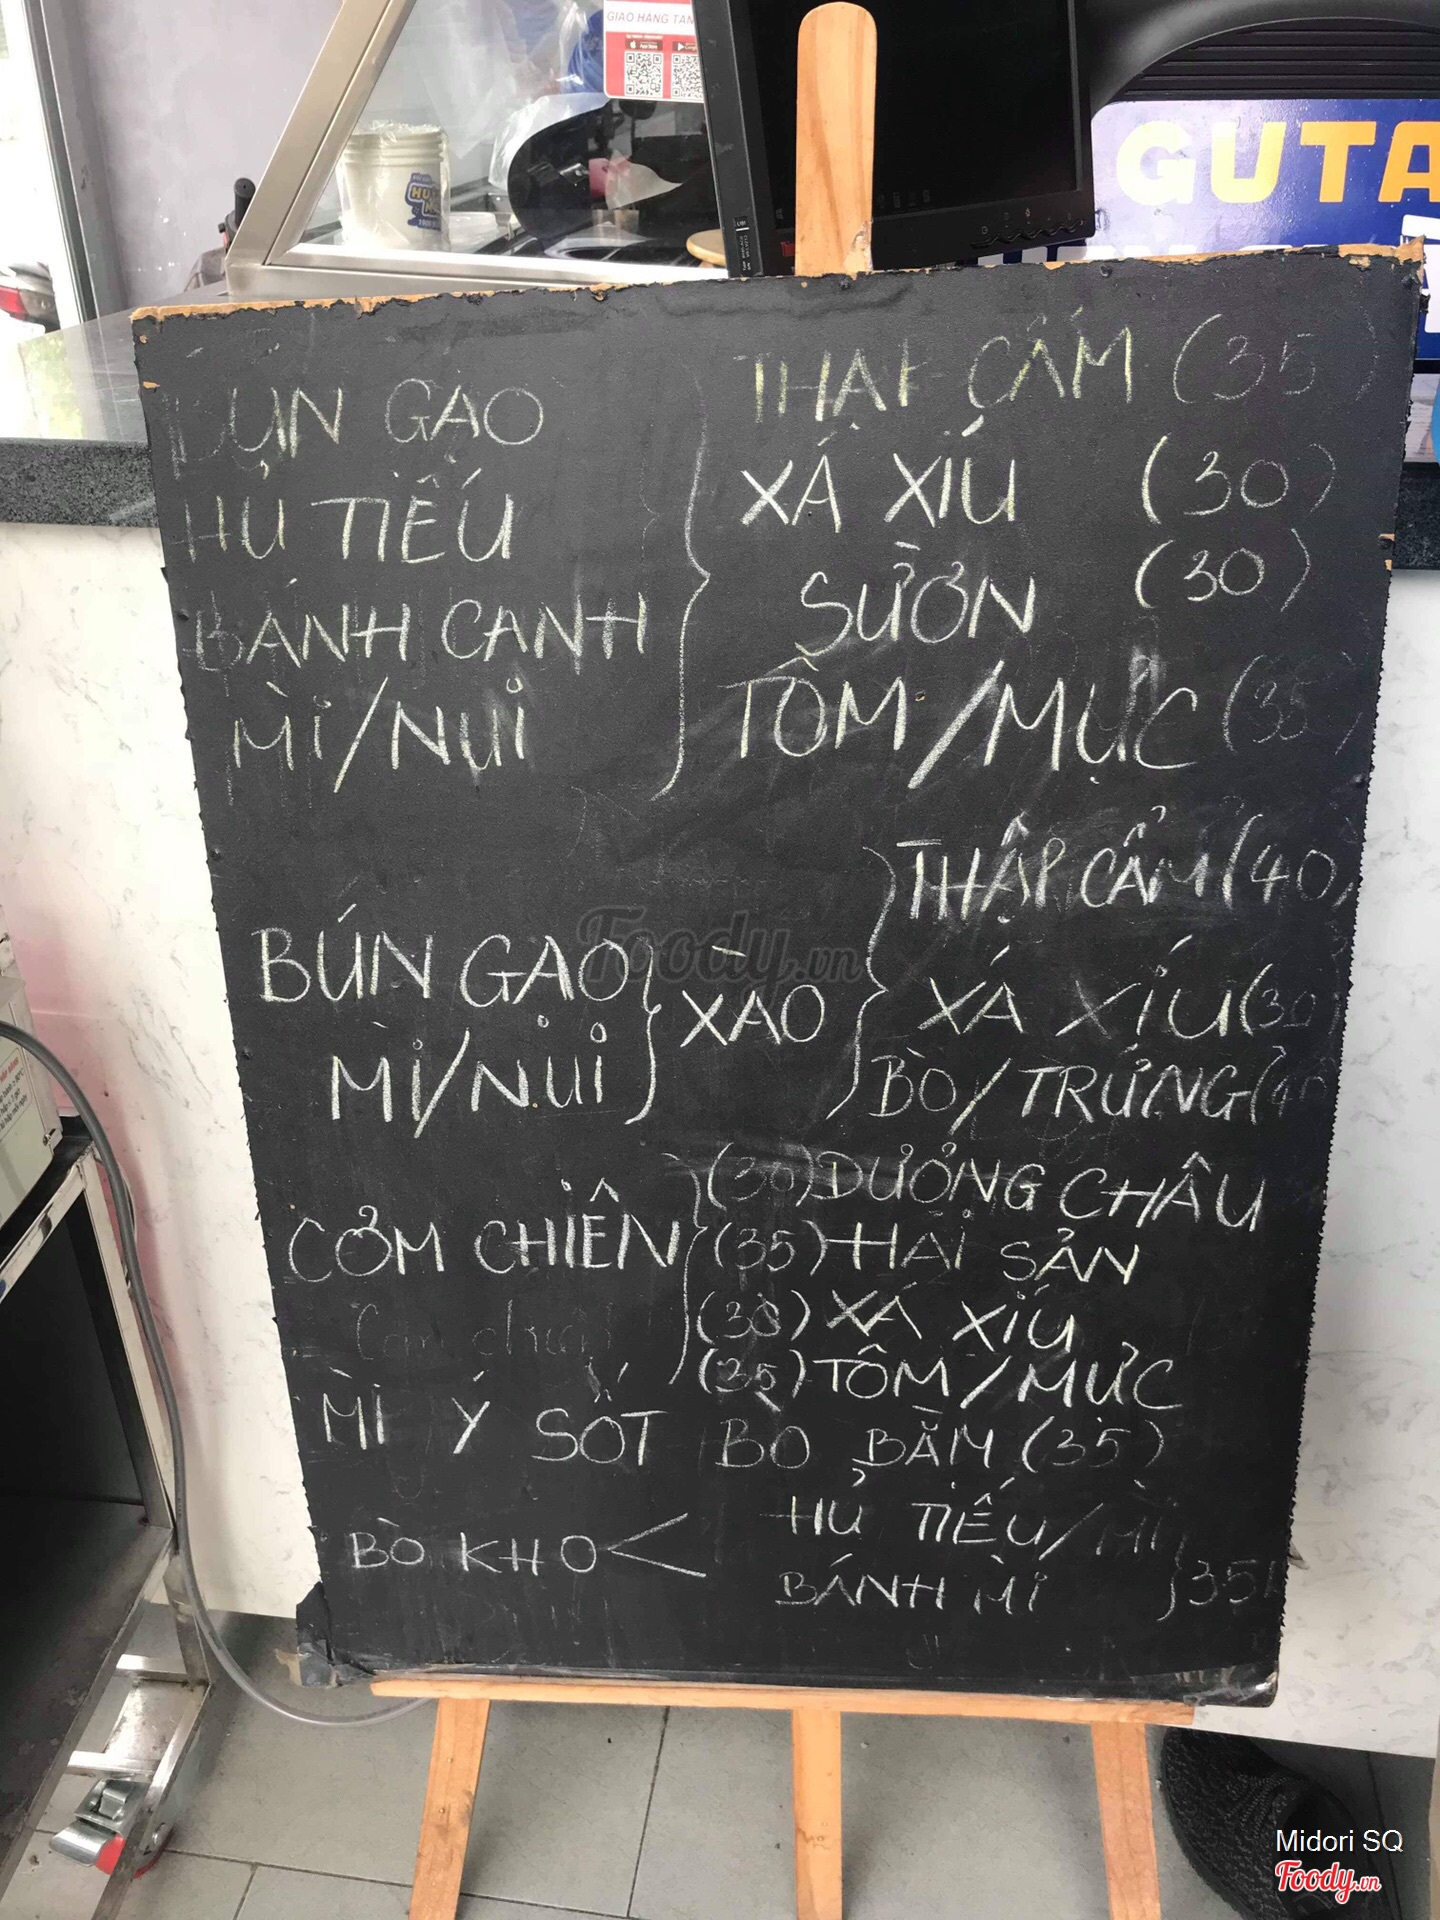 GIAO HÀNG TẬN
App Store
GUTA
BÚN GẠO
HỦ TIẾU
BÁNH CANH
MÌ/NUI
THẬP CẨM (35)
XÁ XÍU (30)
SƯỜN (30)
TÔM/MỰC (35)
BÚN GẠO
MÌ/NUI
XÀO
THẬP CẨM (40)
XÁ XÍU (30)
BÒ/TRỨNG (40
CƠM CHIÊN
(30) DƯƠNG CHÂU
(35) HẢI SẢN
(30) XÁ XÍU
(35) TÔM/MỰC
MÌ Ý SỐT BÒ BẰM (35)
BÒ KHO <
HỦ TIẾU/MÌ
BÁNH MÌ } 35
Foody.vn
Midori SQ
Foody.vn